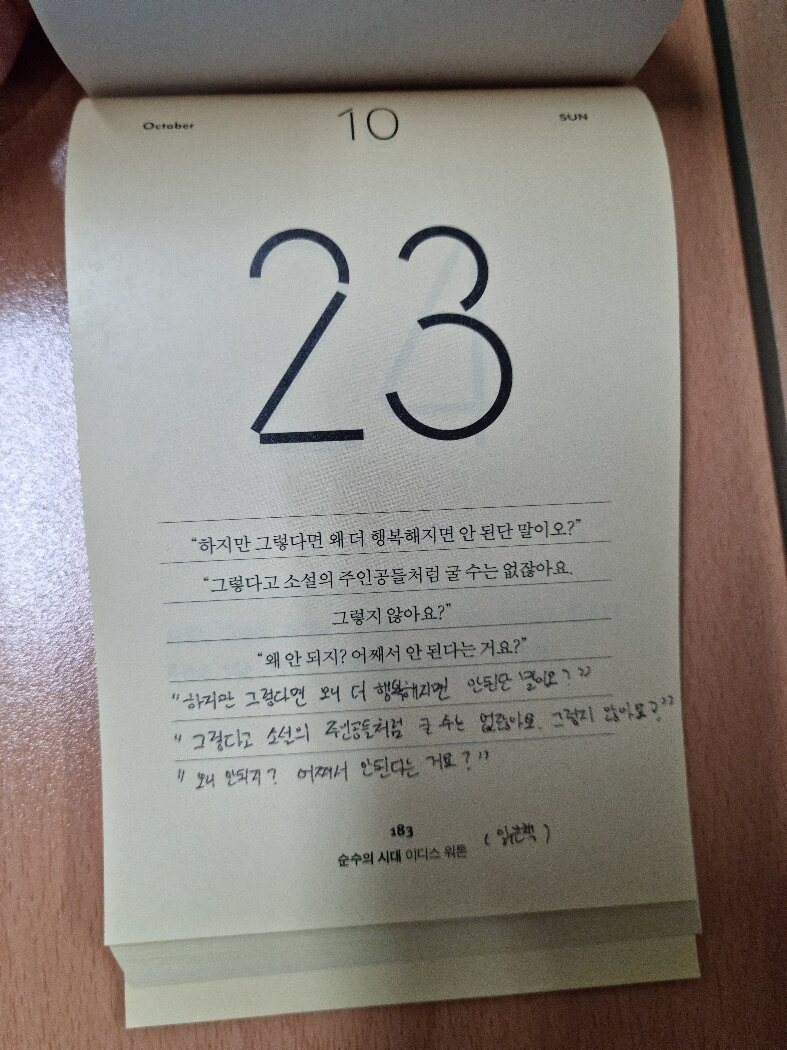 October 10 SUN
23
“하지만 그렇다면 왜 더 행복해지면 안 된단 말이오?”
“그렇다고 소설의 주인공들처럼 굴 수는 없잖아요.
그렇지 않아요?”
“왜 안 되지? 어째서 안 된다는 거요?”
"하지만 그렇다면 왜 더 행복해지면 안된단 말이오?"
"그렇다고 소설의 주인공들처럼 굴 수는 없잖아요. 그렇지 않아요?"
"왜 안되지? 어째서 안된다는 거요?"
183 (읽은책)
순수의 시대 이디스 워튼